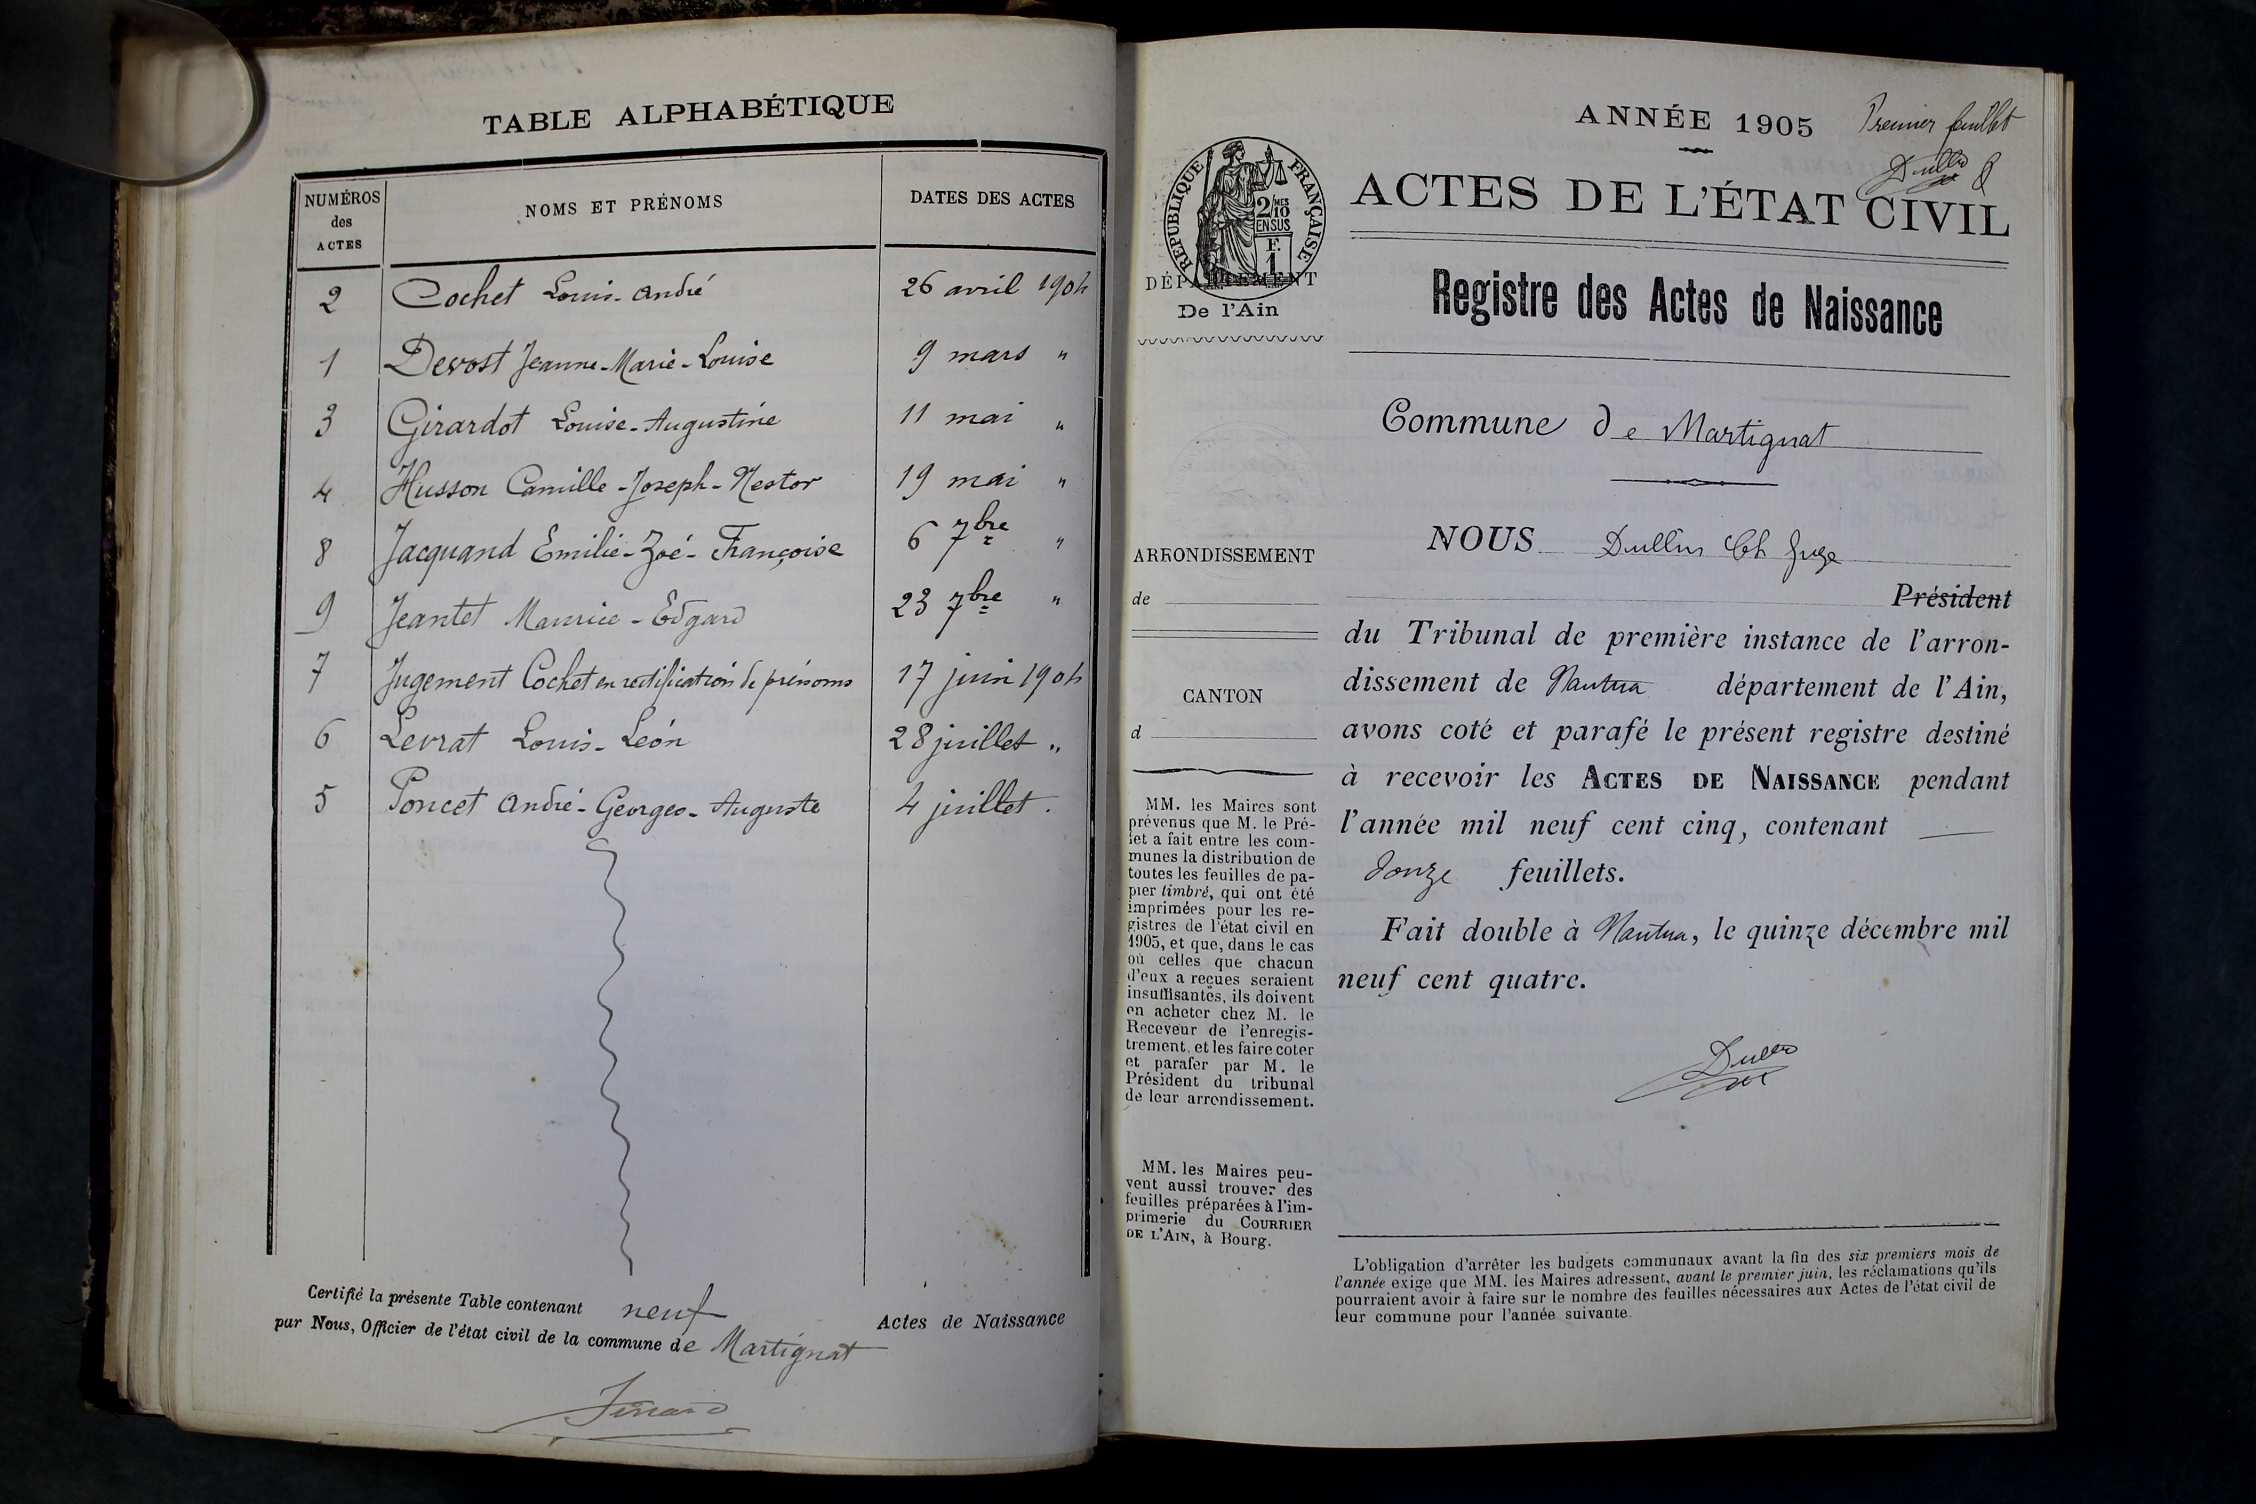 TABLE ALPHABÉTIQUE
NUMÉROS des ACTES
NOMS ET PRÉNOMS
DATES DES ACTES
2 Cochet Louis-André 26 avril 1904
1 Devost Jeanne-Marie-Louise 9 mars "
3 Girardot Louise-Augustine 11 mai "
4 Husson Camille-Joseph-Nestor 19 mai "
8 Jacquand Emilie-Zoé-Françoise 6 7bre "
9 Jeantet Maurice-Edgard 23 7bre "
7 Jugement Cochet en rectification de prénoms 17 juin 1904
6 Levrat Louis-Léon 28 juillet "
5 Poncet André-Georges-Auguste 4 juillet.
Certifié la présente Table contenant neuf Actes de Naissance
par Nous, Officier de l'état civil de la commune de Martignat
ANNÉE 1905
Premier feuillet
Dullin
ACTES DE L'ÉTAT CIVIL
RÉPUBLIQUE FRANÇAISE
2/10MES
EN SUS
F.
1
DÉPARTEMENT
De l'Ain
Registre des Actes de Naissance
Commune de Martignat
ARRONDISSEMENT
de
CANTON
d
MM. les Maires sont
prévenus que M. le Pré-
fet a fait entre les com-
munes la distribution de
toutes les feuilles de pa-
pier timbré, qui ont été
imprimées pour les re-
gistres de l'état civil en
1905, et que, dans le cas
où celles que chacun
d'eux a reçues seraient
insuffisantes, ils doivent
en acheter chez M. le
Receveur de l'enregis-
trement, et les faire coter
et parafer par M. le
Président du tribunal
de leur arrondissement.
MM. les Maires peu-
vent aussi trouver des
feuilles préparées à l'im-
primerie du COURRIER
DE L'AIN, à Bourg.
NOUS Dullin Ch Juge
Président
du Tribunal de première instance de l'arron-
dissement de Nantua département de l'Ain,
avons coté et parafé le présent registre destiné
à recevoir les ACTES DE NAISSANCE pendant
l'année mil neuf cent cinq, contenant
douze feuillets.
Fait double à Nantua, le quinze décembre mil
neuf cent quatre.
Dullin
L'obligation d'arrêter les budgets communaux avant la fin des six premiers mois de
l'année exige que MM. les Maires adressent, avant le premier juin, les réclamations qu'ils
pourraient avoir à faire sur le nombre des feuilles nécessaires aux Actes de l'état civil de
leur commune pour l'année suivante.